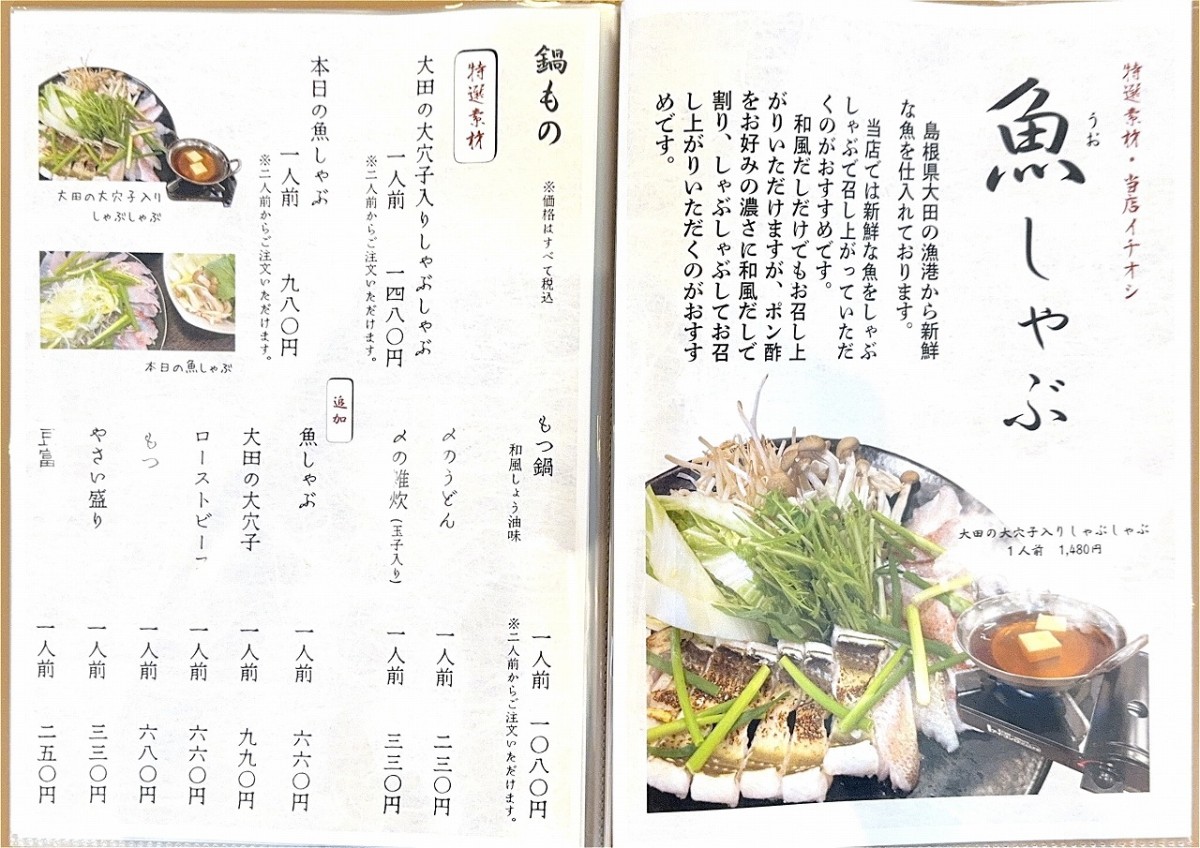 特選素材・当店イチオシ
うお
魚しゃぶ
島根県大田の漁港から新鮮
な魚を仕入れております。
当店では新鮮な魚をしゃぶ
しゃぶで召し上がっていただ
くのがおすすめです。
和風だしだけでもお召し上
がりいただけますが、ポン酢
をお好みの濃さに和風だしで
割り、しゃぶしゃぶしてお召
し上がりいただくのがおすす
めです。
大田の大穴子入りしゃぶしゃぶ
1人前 1,480円
鍋もの
※価格はすべて税込
特選素材
大田の大穴子入りしゃぶしゃぶ
一人前 一四八〇円
※二人前からご注文いただけます。
本日の魚しゃぶ
一人前 九八〇円
※二人前からご注文いただけます。
大田の大穴子入り
しゃぶしゃぶ
本日の魚しゃぶ
もつ鍋
和風しょう油味
一人前 一〇八〇円
※二人前からご注文いただけます。
〆のうどん 一人前 二三〇円
〆の雑炊(玉子入り) 一人前 三三〇円
追加
魚しゃぶ 一人前 六六〇円
大田の大穴子 一人前 九九〇円
ローストビーフ 一人前 六六〇円
もつ 一人前 六八〇円
やさい盛り 一人前 三三〇円
豆富 一人前 二五〇円